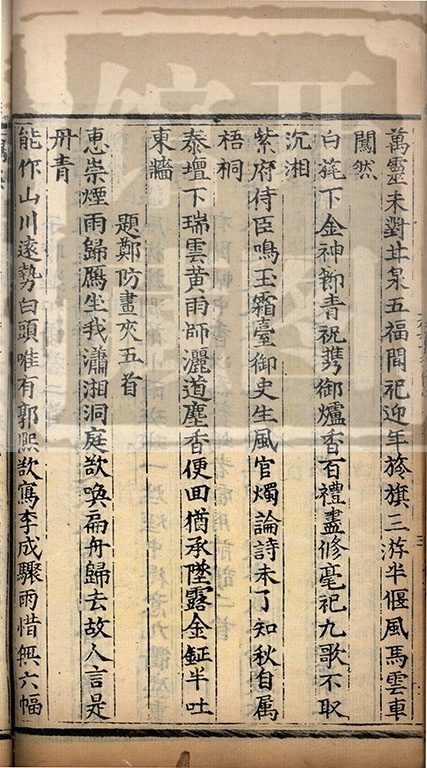 萬靈未對甘泉五福間祀迎年旍旗三斿半偃風馬雲車
闐然
白旄下金神節青祝携御爐香百禮盡修毫祀九歌不取
沉湘
紫府侍臣鳴玉霜臺御史生風官燭論詩未了知秋自属
梧桐
泰壇下瑞雲黄雨師灑道塵香便田猶承墜露金鉦半吐
東牆
題鄭防畫夾五首
惠崇煙雨歸鴈坐我瀟湘洞庭欲喚扁舟歸去故人言是
丹青
能作山川遠勢白頭唯有郭熙欲寫李成驟雨惜無六幅